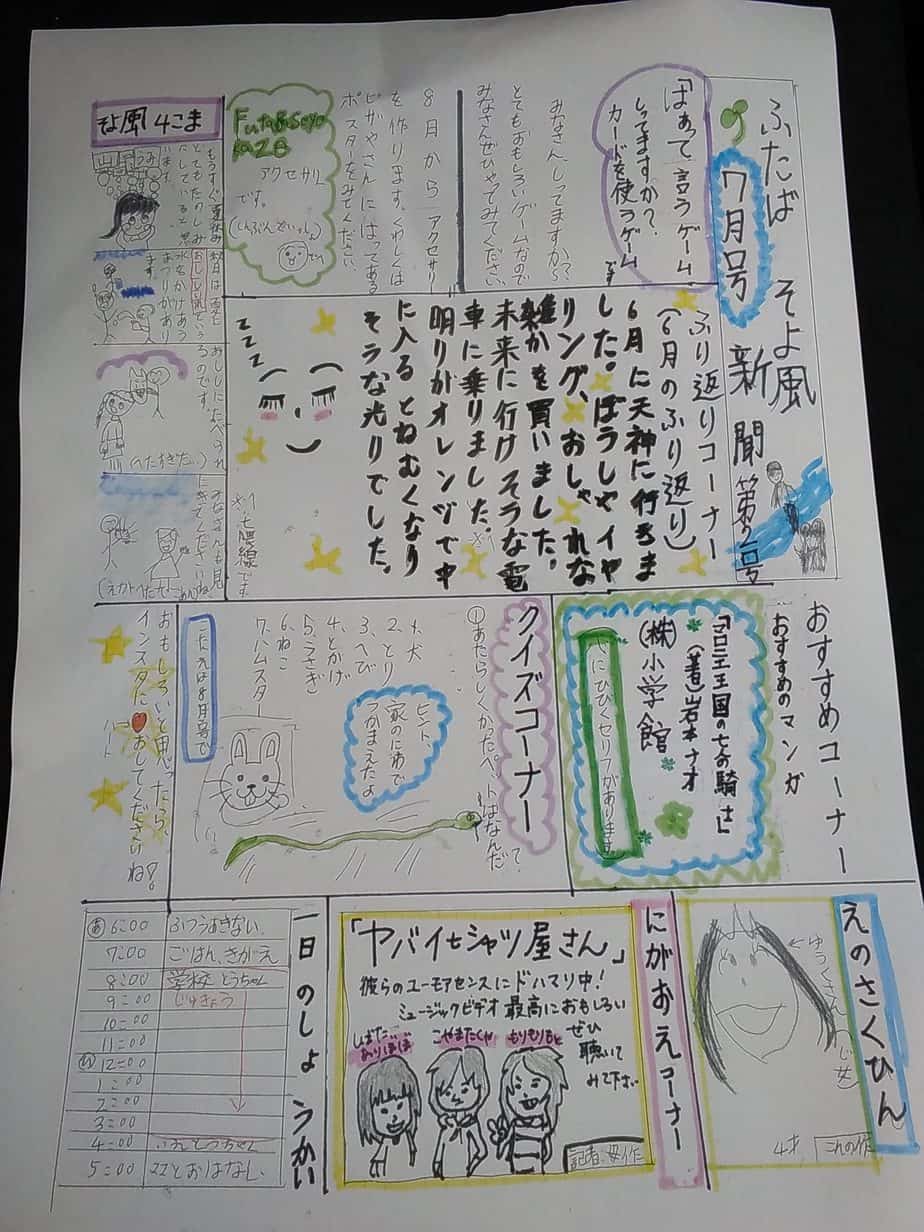 ふたば そよ風 新聞 第2号
7月号
「はぁって言うゲーム」
しってますか?
カードを使うゲーム
です
みなさん、しってますか?
とてもおもしろいゲームなので
みなさんぜひやってみてください。
8月からアクセサリー
を作ります。くわしくは
ピザやさんにはってある
ポスタをみてください。
Futabasoyo
kaze
アクセサリー
です。
ふり返りコーナー
(6月のふり返り)
6月に天神に行きま
した。ぼうしやイヤ
リング、おしゃれな
雑かを買いました。
未来に行けそうな電
車に乗りました。
明りがオレンヅで中
に入るとねむくなり
そうな光りでした。
七隈線です
zzz
そよ風4こま
もうすぐ夏休み
とてもたのしみ
にしていると思
います。
水をかけあう
おまつりがあり
ます。
(へたすぎた…)
みなさんも見
にきてくださいね
おすすめコーナー
おすすめのマンガ
「マロニエ王国の七人の騎士」
(著)岩本ナオ
(株)小学館
心にひびくセリフがあります
クイズコーナー
①あたらしくかったペットはなんだ
1.犬
2.とり
3.へび
4.とかげ
5.うさぎ
6.ねこ
7.ハムスター
ヒント、
家のにわで
つかまえたよ
こたえは8月号で
おもしろいと思ったら、
インスタに❤おしてくださいね!
ハート
えのさくひん
ゆうくさん
(じ女)
4才
こんの作
にがおえコーナー
「ヤバイTシャツ屋さん」
彼らのユーモアセンスにドハマリ中!
ミュージックビデオ最高におもしろい
ぜひ
聴いて
みて下さい
しばた
ありぼぼ
こやまたくや
もりもりもと
記者、母作
一日のしょうかい
あ 6:00 ふつうおきない
7:00 ごはん、きがえ
8:00 学校とうちゃく
9:00 じゅぎょう
10:00
11:00
12:00
1:00
2:00
3:00
4:00 いえとうちゃく
5:00 ママとおはなし